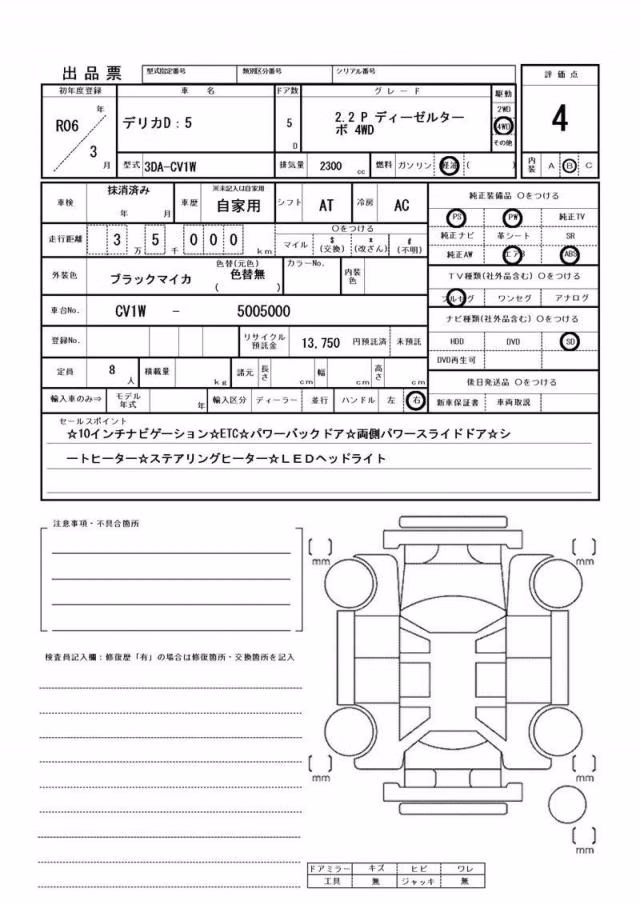 出品票 型式指定番号 類別区分番号 シリアル番号 評価点
初年度登録 車名 ドア数 グレード 駆動
R06 年 3 月 デリカD:5 5 D 2.2 P ディーゼルター 2WD 4
ボ 4WD 4WD
その他
型式 3DA-CV1W 排気量 2300 cc 燃料 ガソリン 軽油 ( ) 内装 A B C
車検 抹消済み 年 月 車歴 ※未記入は自家用 自家用 シフト AT 冷房 AC 純正装備品 ○をつける
PS PW 純正TV
走行距離 3 万 5 千 0 0 0 km ○をつける
マイル $ (交換) x (改ざん) # (不明) 純正ナビ 革シート SR
純正AW エアB ABS
外装色 ブラックマイカ 色替(元色) 色替無 ( ) カラーNo. 内装色 TV種類(社外品含む) ○をつける
フルセグ ワンセグ アナログ
車台No. CV1W - 5005000 ナビ種類(社外品含む) ○をつける
登録No. リサイクル預託金 13,750 円預託済 未預託 HDD DVD SD
DVD再生可
定員 8 人 積載量 kg 諸元 長さ cm 幅 cm 高さ cm 後日発送品 ○をつける
輸入車のみ⇒ モデル年式 年 輸入区分 ディーラー 並行 ハンドル 左 右 新車保証書 車両取説
セールスポイント
☆10インチナビゲーション☆ETC☆パワーバックドア☆両側パワースライドドア☆シ
ートヒーター☆ステアリングヒーター☆LEDヘッドライト
注意事項・不具合箇所
mm mm
検査員記入欄:修復歴「有」の場合は修復箇所・交換箇所を記入
mm mm
mm
ドアミラー キズ ヒビ ワレ
工具 無 ジャッキ 無